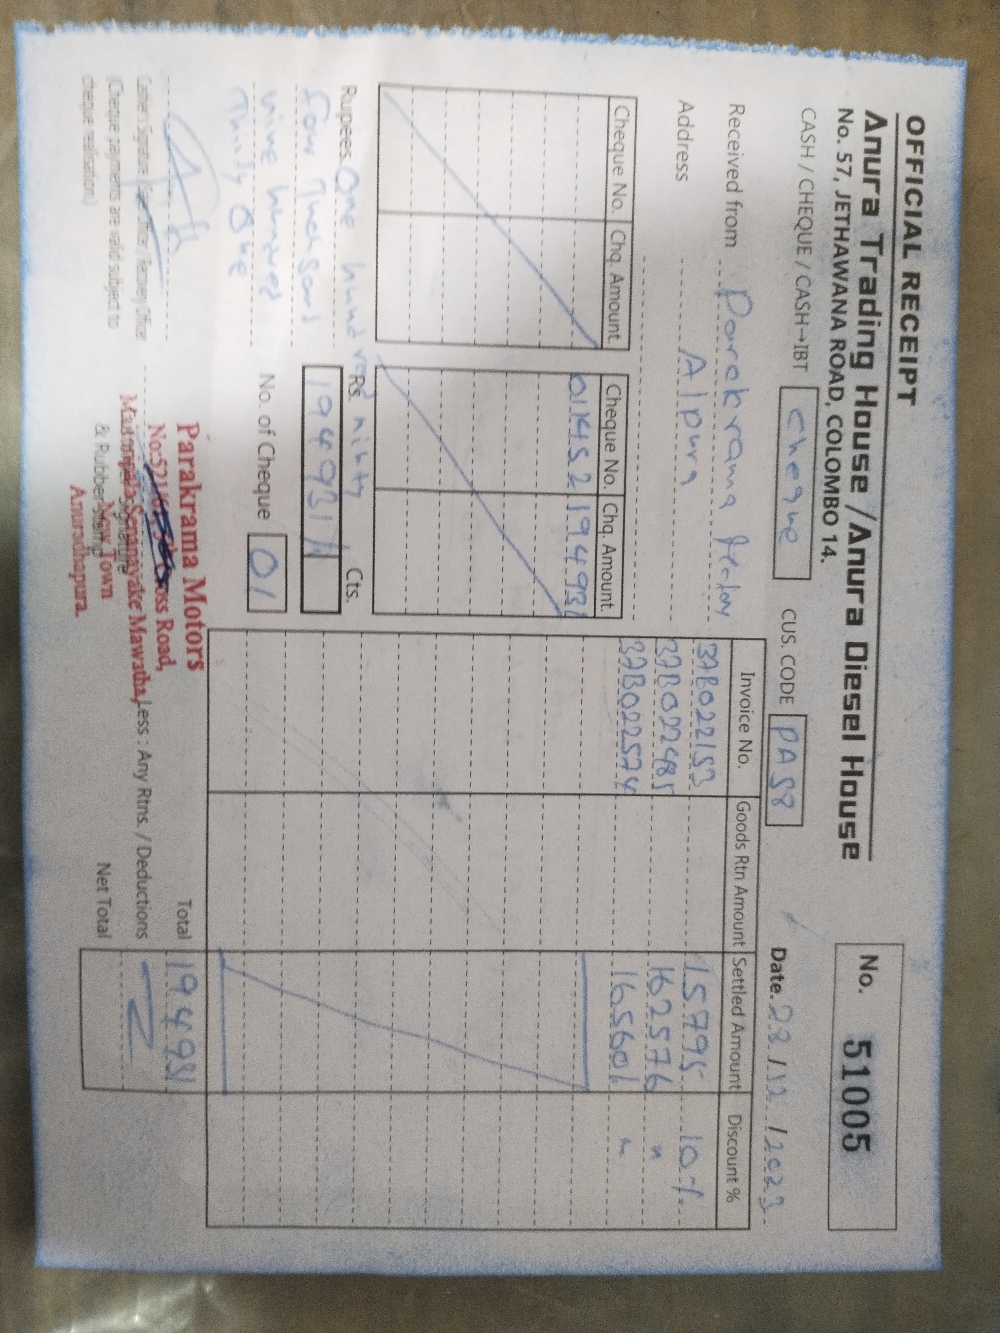 OFFICIAL RECEIPT
Anura Trading House / Anura Diesel House
No. 57, JETHAWANA ROAD, COLOMBO 14.
No. 51005
CASH / CHEQUE / CASH→IBT cheque CUS. CODE PA58 Date. 28/12/2023
Received from Parakrama
Address Alpura
Cheque No. Chq. Amount Cheque No. Chq. Amount
011452 194931
Invoice No. Goods Rtn Amount Settled Amount Discount %
37B022153 15795 10%
37B022485 162576 "
37B022574 16560/ "
Rupees. One hundred ninty
four Thousand
nine hundred
Thirty One
Rs. Cts.
194931
No. of Cheque 01
Total 194931
Less : Any Rtns. / Deductions
Net Total
Parakrama Motors
Road,
Senanayake Mawatha,
New Town
Anuradhapura.
& Rubber
(Cheque payments are valid subject to
cheque realisation)